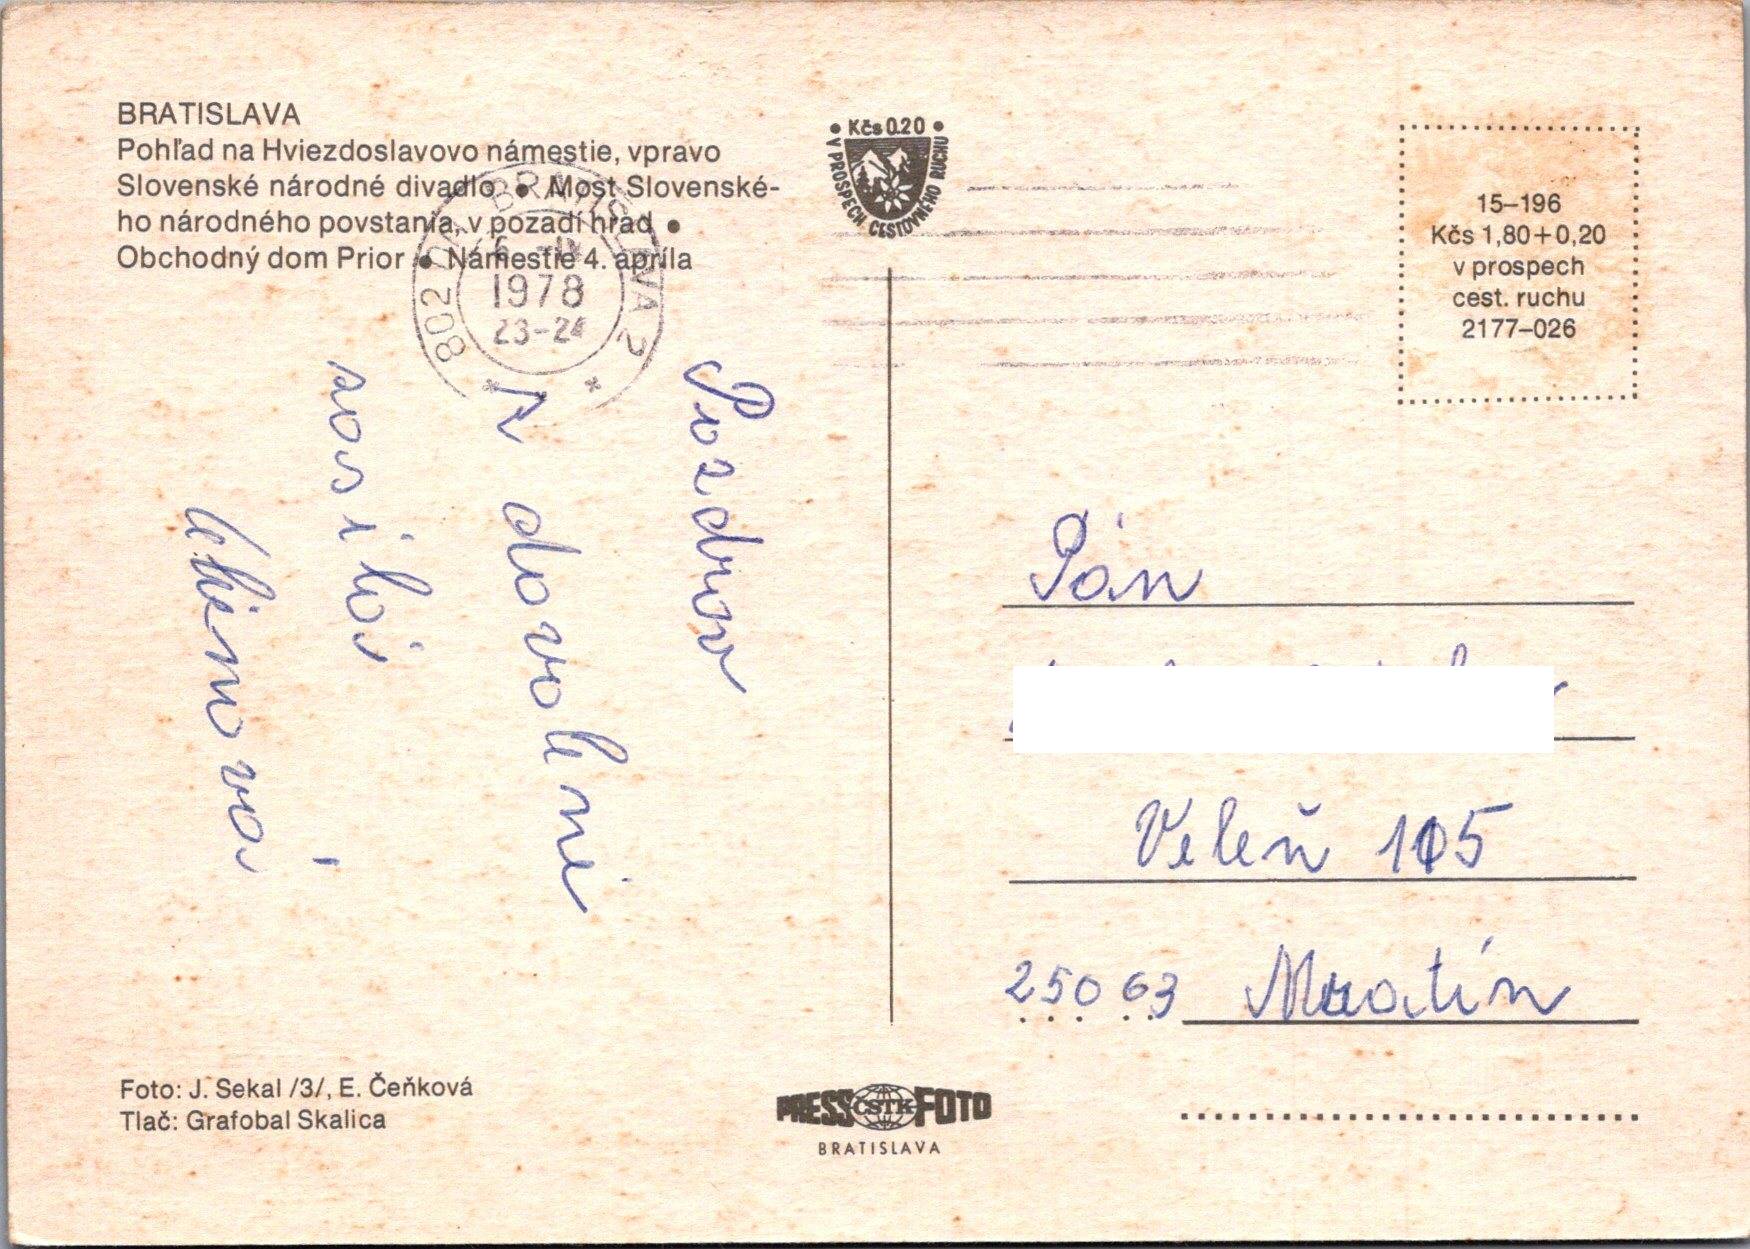 BRATISLAVA
Pohľad na Hviezdoslavovo námestie, vpravo
Slovenské národné divadlo ● Most Slovenské-
ho národného povstania, v pozadí hrad ●
Obchodný dom Prior ● Námestie 4. apríla
802 BRATISLAVA 2
1978
23-24
• Kčs 0.20 •
V PROSPECH CESTOVNÉHO RUCHU
15–196
Kčs 1,80+0,20
v prospech
cest. ruchu
2177–026
Pozdrav
z dovoleni
Pán
Veleň 105
250 63 Mratín
Foto: J. Sekal /3/, E. Čeňková
Tlač: Grafobal Skalica
PRESS ČSTK FOTO
BRATISLAVA